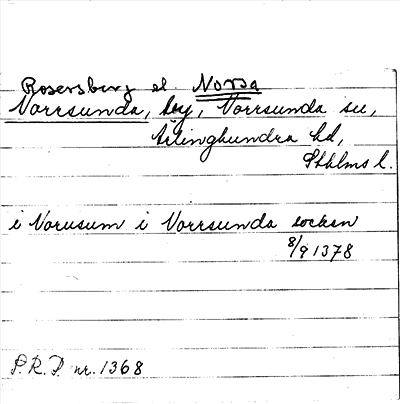 Rosersberg el. Norsa
Norrsunda, by, Norrsunda sn,
Ärlinghundra hd,
Sthlms l.
i Norusum i Norrsunda socken
8/9 1378
S.R.P. nr. 1368